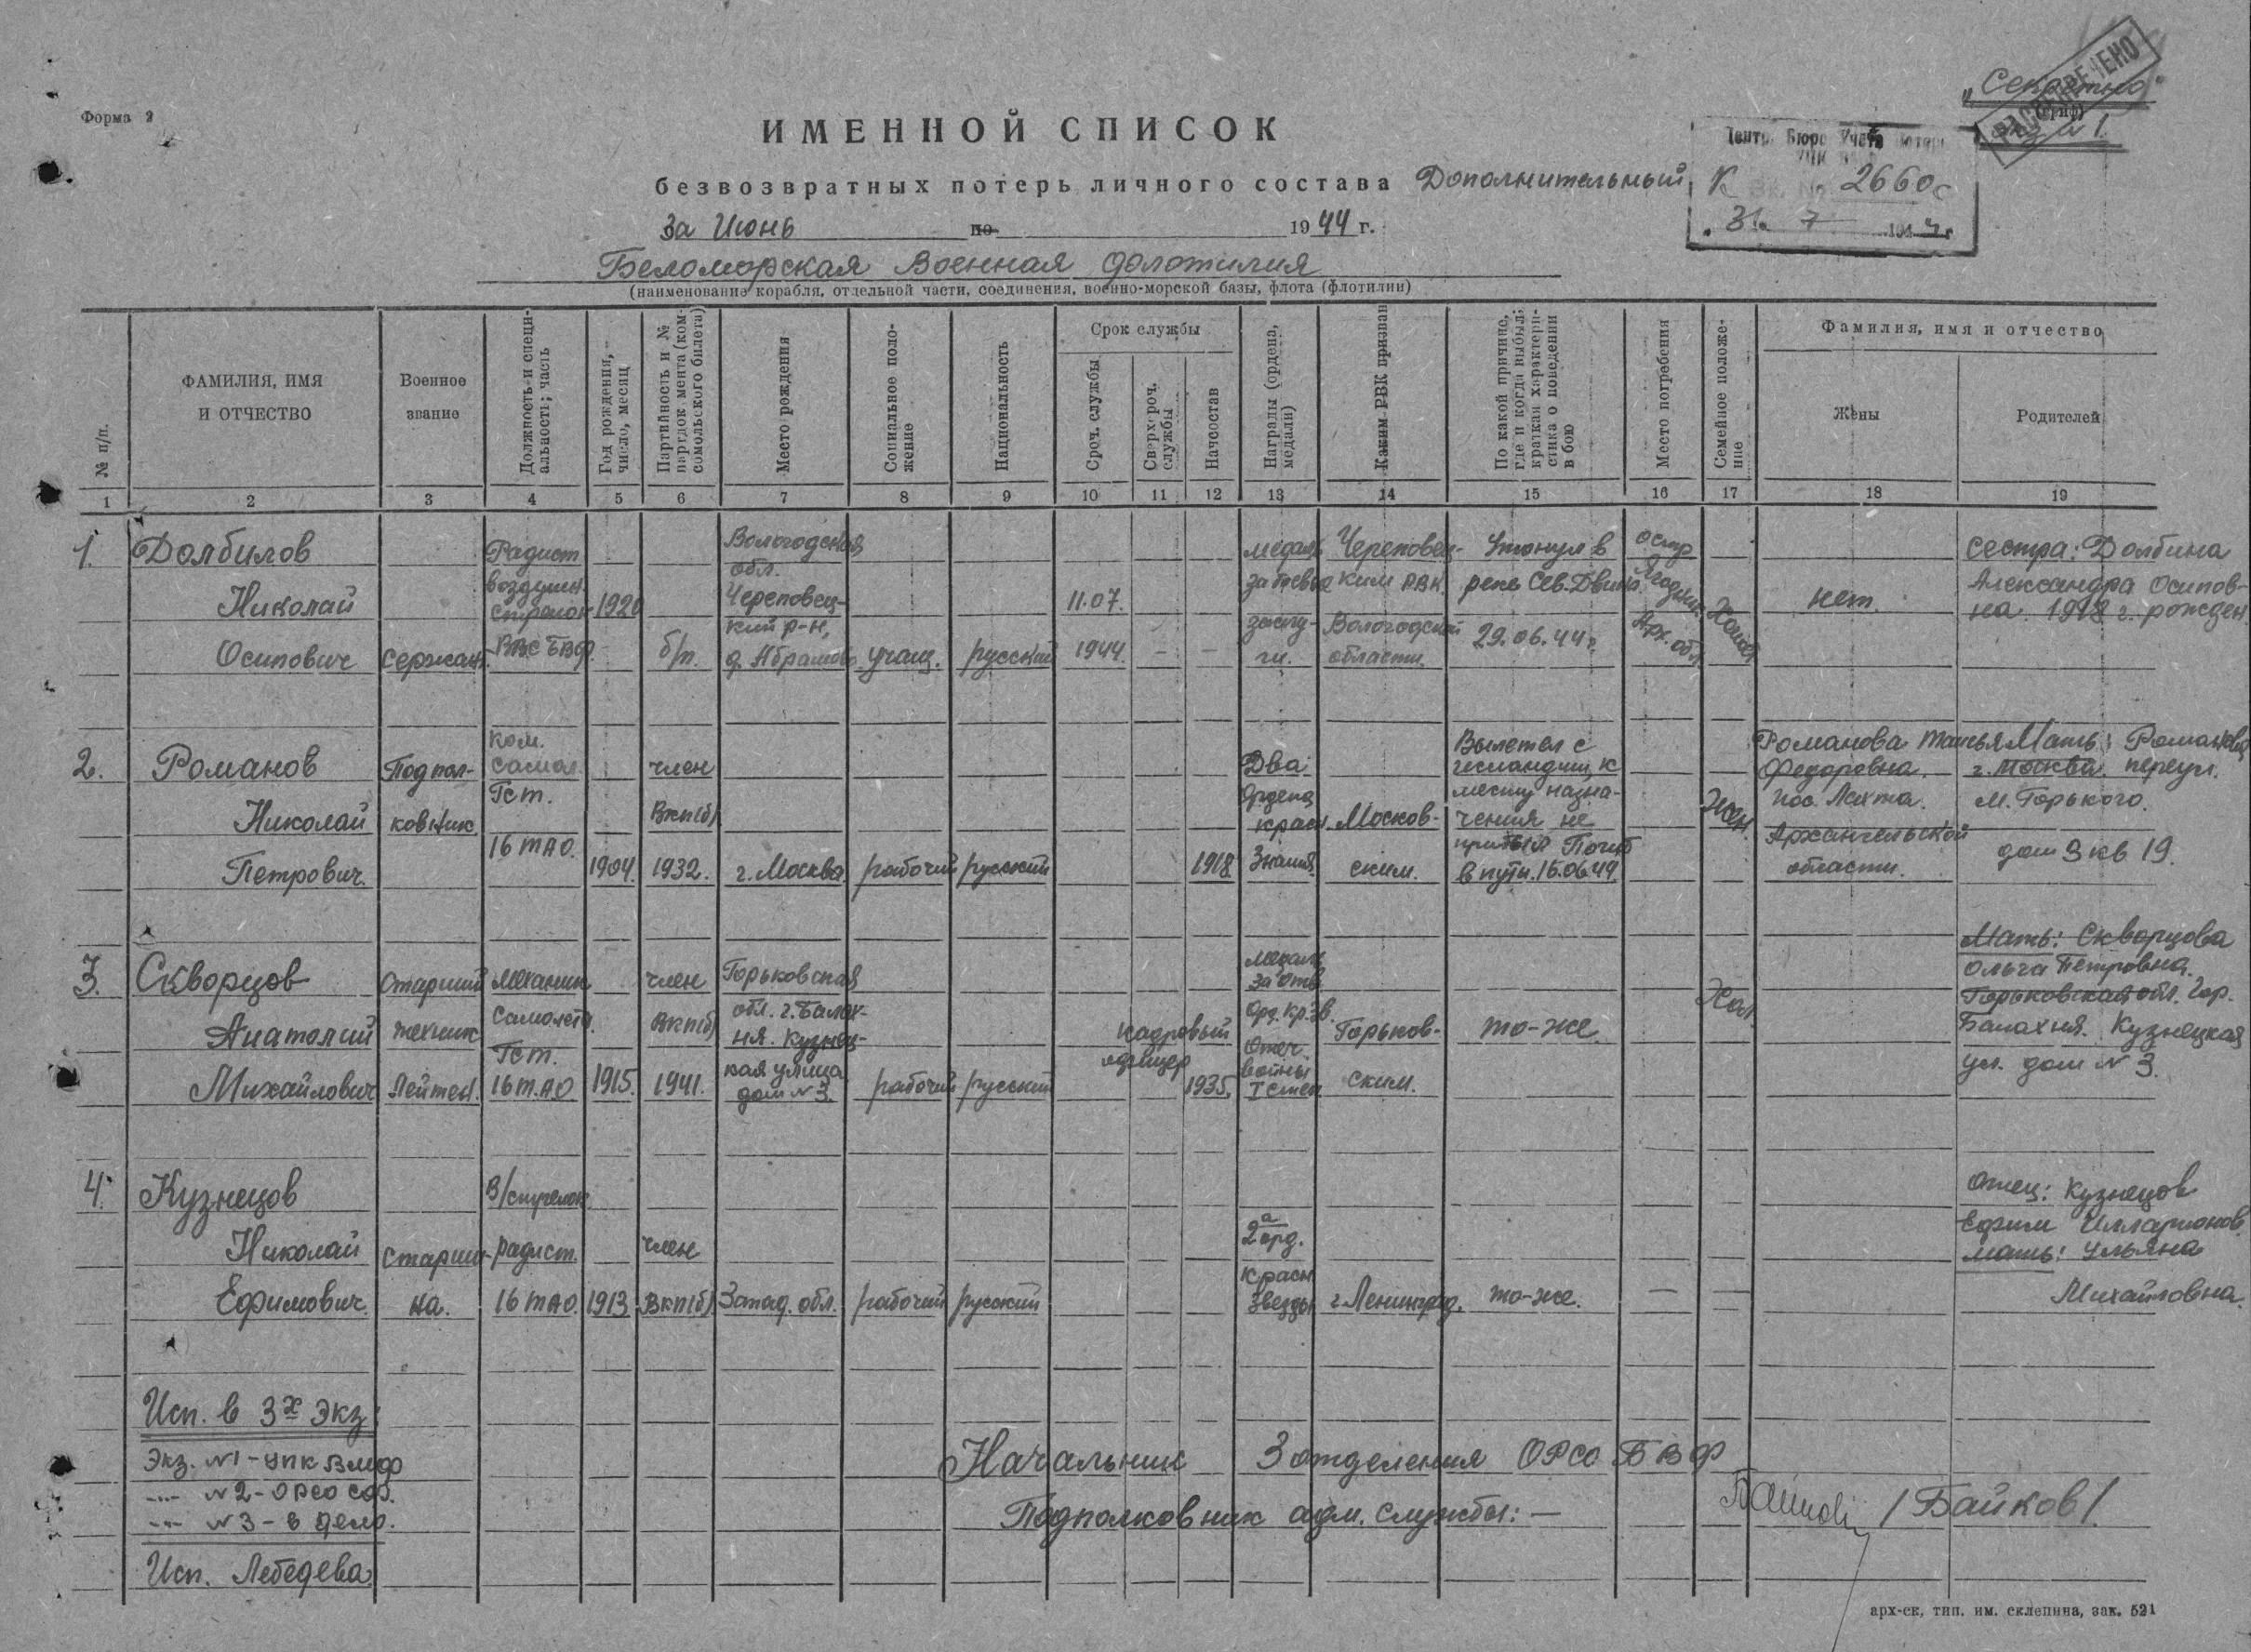 Форма 2
„Секретно"
РАССЕКРЕЧЕНО
(гриф)
экз № 1.
ИМЕННОЙ СПИСОК
безвозвратных потерь личного состава Дополнительный
За Июнь по 1944 г.
Центр. Бюро Учета Потерь
К Вх. № 2660с
„31. 7 1944 г.
Беломорская Военная флотилия
(наименование корабля, отдельной части, соединения, военно-морской базы, флота (флотилии)
№ п/п.
ФАМИЛИЯ, ИМЯ
И ОТЧЕСТВО
Военное
звание
Должность и специ-
альность; часть
Год рождения,
число, месяц
Партийность и №
партдокумента (ком-
сомольского билета)
Место рождения
Социальное поло-
жение
Национальность
Срок службы
Сроч. службы
Сверхсроч.
службы
Начсостав
Награды (ордена,
медали)
Каким РВК призван
По какой причине,
где и когда выбыл;
краткая характери-
стика о поведении
в бою
Место погребения
Семейное положе-
ние
Фамилия, имя и отчество
Жены
Родителей
1 2 3 4 5 6 7 8 9 10 11 12 13 14 15 16 17 18 19
1.
Долбилов
Николай
Осипович
Сержант.
Радист
воздушн.
стрелок
ВВС БВФ.
1920
б/п.
Вологодская
обл.
Череповец-
кий р-н,
д. Абрамово
учащ.
русский
11.07.
1944
-
-
медаль
за боевые
заслу-
ги.
Череповец-
ким РВК.
Вологодской
области.
Утонул в
реке Сев. Двина.
29.06.44 г.
остр
Ягодник
Арх. обл.
Холост
нет.
сестра: Долбина
Александра Осипов-
на. 1918 г. рожден
2.
Романов
Николай
Петрович.
Подпол-
ковник
ком.
самол.
Тст.
16 ТАО.
1904.
член
ВКП(б)
1932.
г. Москва.
рабочий
русский
1918
Два
Ордена
красн.
Знамя
Москов-
ским.
Вылетел с
исландии, к
месту назна-
чения не
прибыл Погиб
в пути. 15.06.44.
Жен.
Романова Таисья
Федоровна.
пос. Лахта.
Архангельской
области.
Мать: Романова
г. Москва. переул.
М. Горького.
дом 3 кв 19.
3.
Скворцов
Анатолий
Михайлович
Старший
техник
Лейтен.
механик
самолета.
Тст.
16 Т.АО
1915.
член
ВКП(б)
1941.
Горьковская
обл. г. Балах-
ня. Кузнец-
кая улица
дом № 3.
рабочий
русский
кадровый
офицер
1935.
медаль
Орд. Кр. Зв.
Отеч.
войны
I степ.
Горьков-
ским.
то-же.
Хол.
Мать: Скворцова
Ольга Петровна.
Горьковская обл. Гор.
Балахня. Кузнецкая
ул. дом № 3.
4.
Кузнецов
Николай
Ефимович.
Старши-
на.
В/стрелок
радист.
16 ТАО.
1913
член
ВКП(б)
Запад. обл.
рабочий
русский
2а орд.
Красн
Звезды
г. Ленинград.
то-же.
—
—
Отец: Кузнецов
Ефим Илларионов.
мать: Ульяна
Михайловна.
Исп. в 3х экз:
Экз. №1 - УПК ВМФ
-"- №2 - ОРСО
-"- №3 - в дело.
Исп. Лебедева
Начальник 3 отделения ОРСО БВФ
Подполковник адм. службы: —
Байков /Байков/.
арх-ск, тип. им. склепина, зак. 521